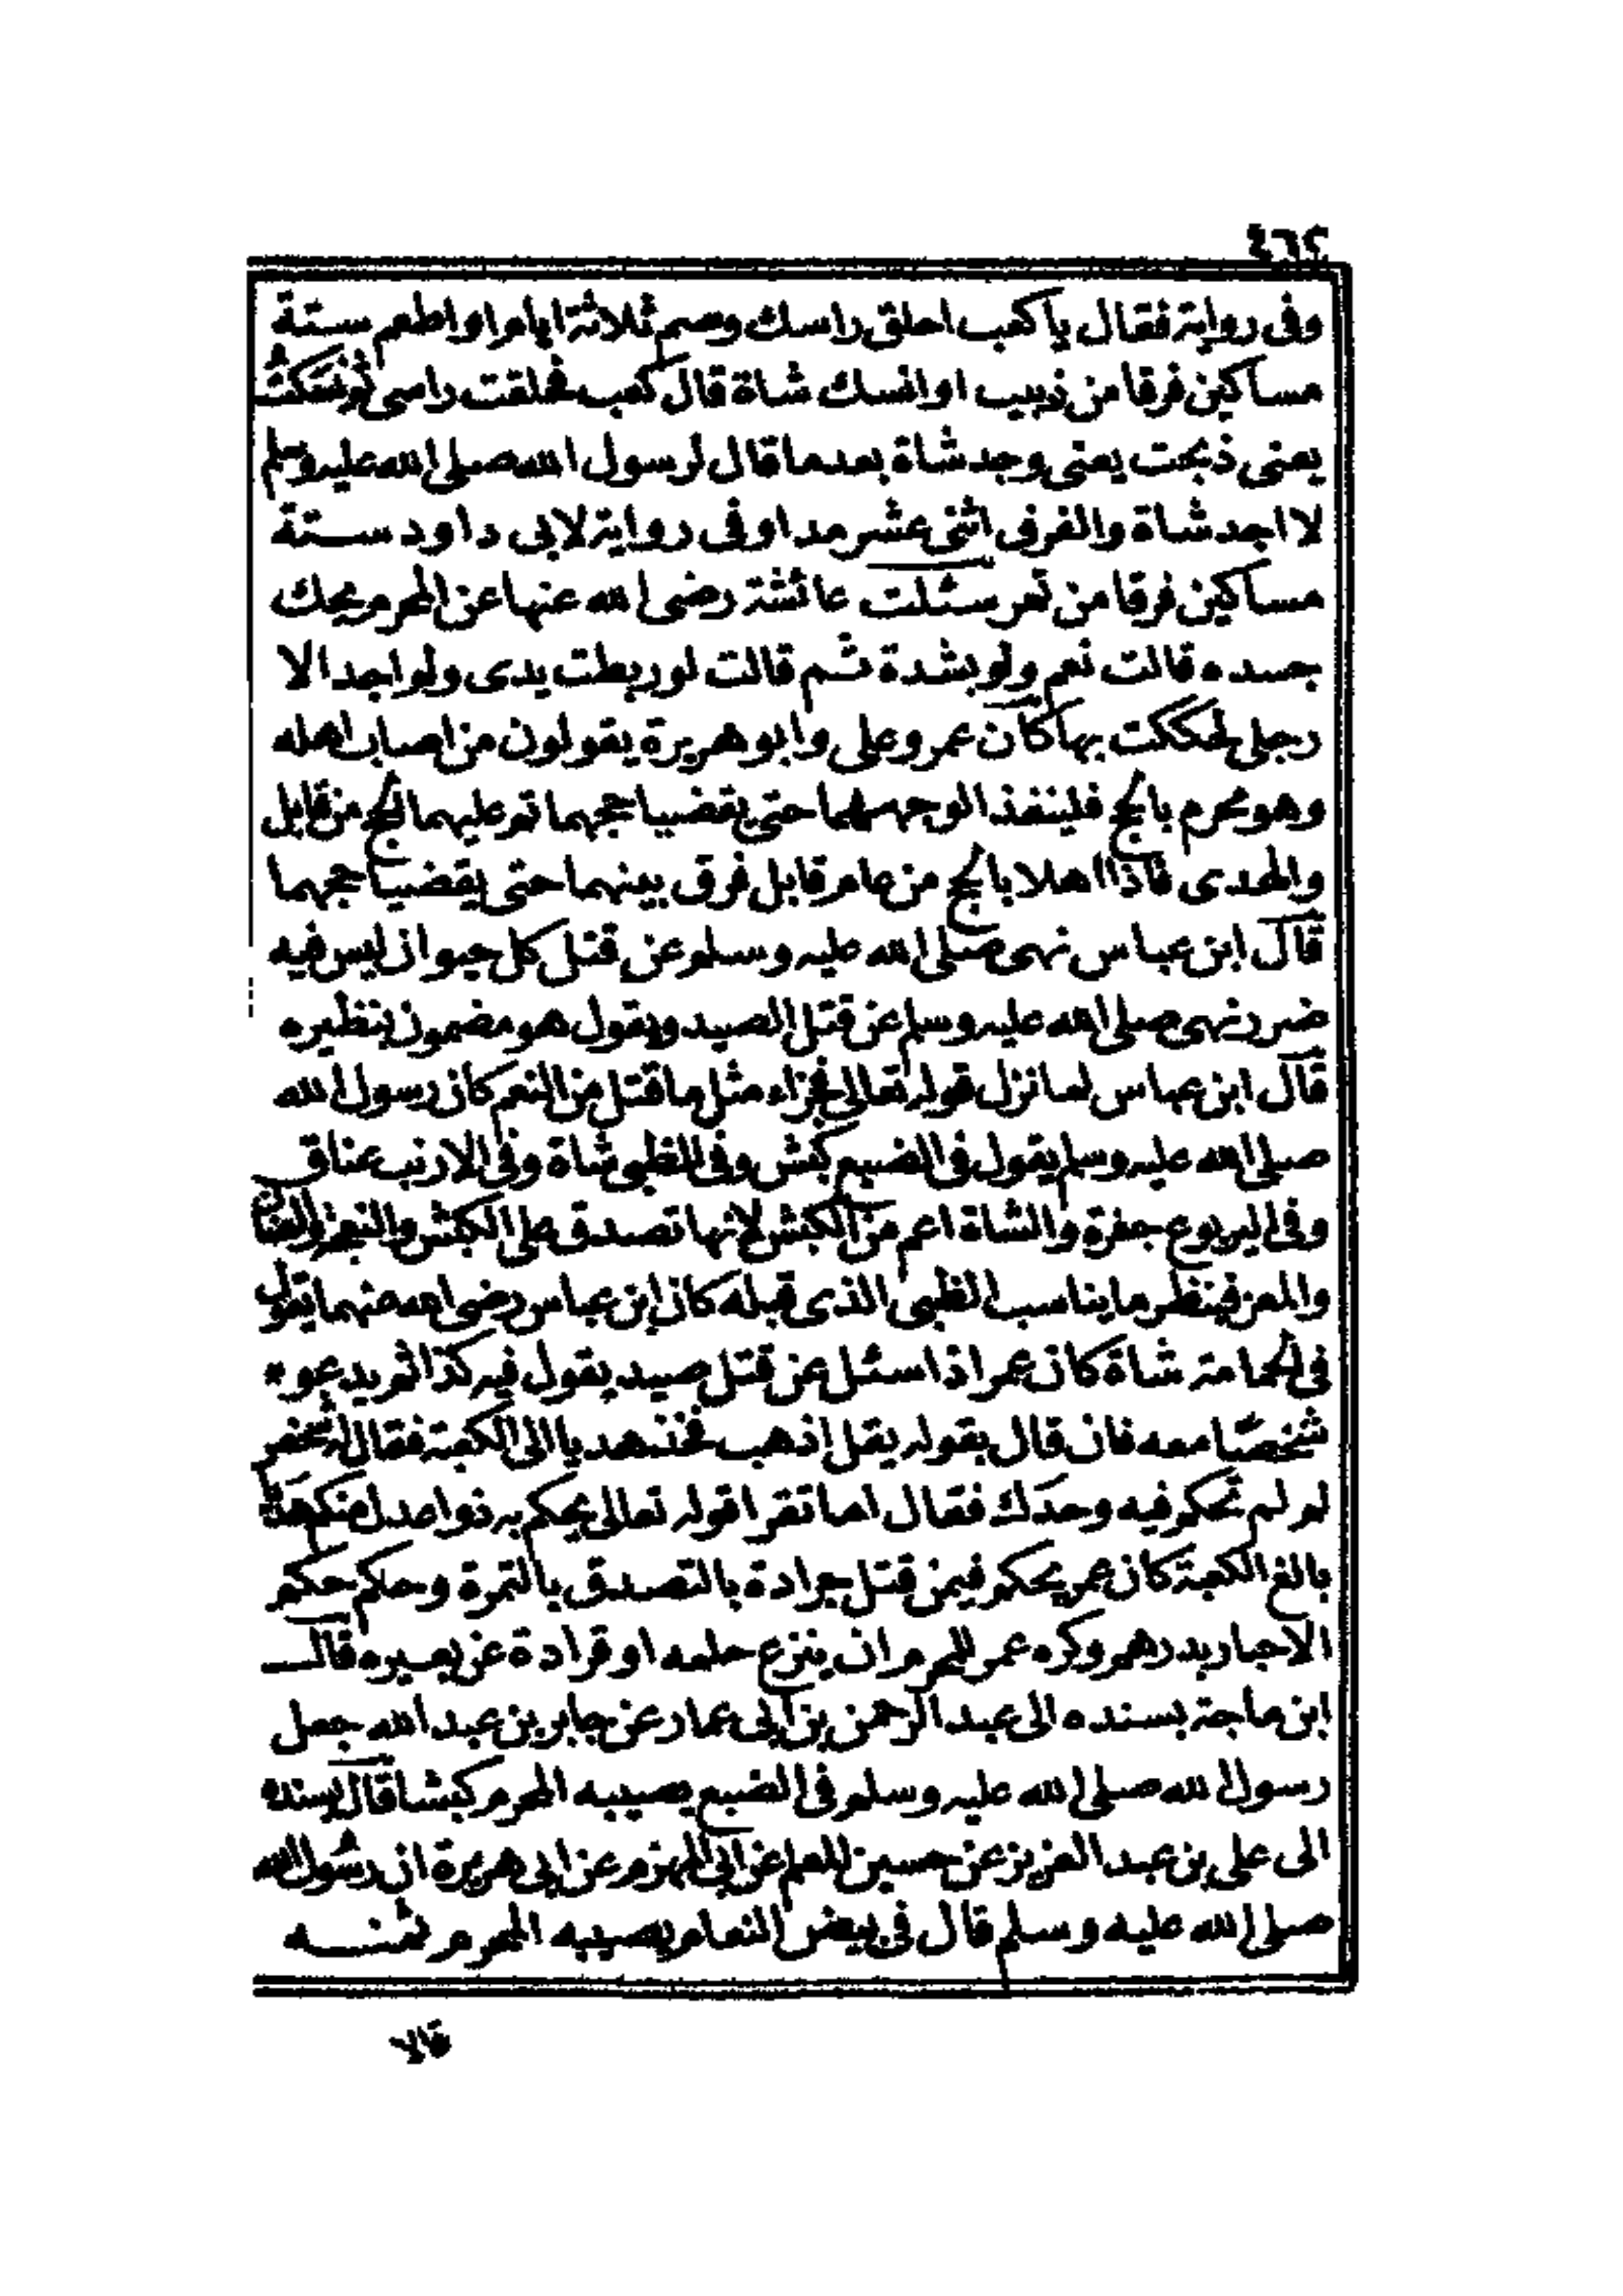 ٤٦٢
وفى رواية فقال يا كعب احلق راسك وصم ثلاثة ايام او اطعم ستة
مساكين فرقا من زبيب او انسك شاة قال كعب فحلقت راسى ثم نسكت
يعنى ذبحت يعنى وجد شاة بعد ما قال لرسول الله صلى الله عليه وسلم
لا اجد شاة والفرق اثنى عشر مدا وفى رواية لابى داود ستة
مساكين فرقا من تمر سئلت عائشة رضى الله عنها عن المحرم يحك
جسده قالت نعم ولو بشدة ثم قالت لو ربطت يدى ولو اجد الا
رجلى لحككت بها كان عمر وعلى وابو هريرة يقولون من اصاب اهله
وهو محرم بالحج فلينفذا لوجههما حتى يقضيا حجهما ثم عليهما الحج من قابل
والهدى فاذا اهلا بالحج من عام قابل فرق بينهما حتى يقضيا حجهما
قال ابن عباس نهى صلى الله عليه وسلم عن قتل كل حيوان ليس فيه
ضرر نهى صلى الله عليه وسلم عن قتل الصيد ويقول هو مضمون بنظيره
قال ابن عباس لما نزل قوله تعالى فجزاء مثل ما قتل من النعم كان رسول الله
صلى الله عليه وسلم يقول فى الضبع كبش وفى الظبى شاة وفى الارنب عناق
وفى اليربوع جفرة والشاة اعم من الكبش لانها تصدق على الكبش والنعجة والضان
والمعز فينظر ما يناسب الظبى الذى قبله كان ابن عباس رضى الله عنهما يقول
فى الحمامة شاة كان عمر اذا سئل عن قتل صيد يقول فيه كذا ثم يدعو
شخصا معه فان قال بقوله يقل اذهب فخذ هديا الى الكعبة فقال له شخص
لم لم تحكم فيه وحدك فقال اما تقرا قوله تعالى يحكم به ذوا عدل منكم هديا
بالغ الكعبة كان عمر يحكم فيمن قتل جرادة بالتصدق بالتمرة وحاكم حكم
الاحبار بدرهم وكره عمر للمحرم ان ينزع حلمه او قرادة عن بعيره قال
ابن ماجة بسنده الى عبد الرحمن بن ابى عمار عن جابر بن عبد الله جعل
رسول الله صلى الله عليه وسلم فى الضبع يصيبه المحرم كبشا قال بسنده
الى على بن عبد العزيز عن حسين المعلم عن ابى المهزم عن ابى هريرة ان رسول الله
صلى الله عليه وسلم قال فى بيض النعام يصيبه المحرم ثمنه
قال